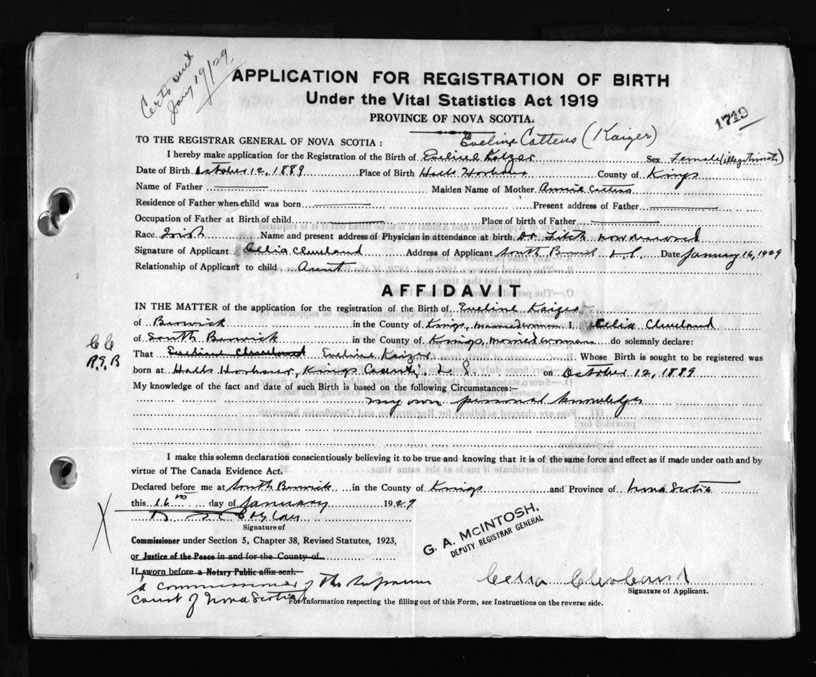 Certs sent
Jany 19/29.
APPLICATION FOR REGISTRATION OF BIRTH
Under the Vital Statistics Act 1919
PROVINCE OF NOVA SCOTIA.
1719
TO THE REGISTRAR GENERAL OF NOVA SCOTIA : Eveline Cattens (Kaizer)
I hereby make application for the Registration of the Birth of Eveline Kaizer Sex Female (illegitimate)
Date of Birth October 12, 1889 Place of Birth Halls Harbour County of Kings
Name of Father Maiden Name of Mother Annie
Residence of Father when child was born Present address of Father
Occupation of Father at Birth of child Place of birth of Father
Race Irish Name and present address of Physician in attendance at birth Dr. Fitch
Signature of Applicant Celia Cleveland Address of Applicant South Berwick N.S. Date January 16, 1929
Relationship of Applicant to child Aunt
AFFIDAVIT
IN THE MATTER of the application for the registration of the Birth of Eveline Kaizer
of Berwick in the County of Kings, Married woman I, Celia Cleveland
of South Berwick in the County of Kings, Married woman do solemnly declare:
CC
R.S.B
That Eveline Cleveland Eveline Kaizer Whose Birth is sought to be registered was
born at Halls Harbour, Kings County, N. S. on October 12, 1889
My knowledge of the fact and date of such Birth is based on the following Circumstances:—
my own personal knowledge
I make this solemn declaration conscientiously believing it to be true and knowing that it is of the same force and effect as if made under oath and by
virtue of The Canada Evidence Act.
Declared before me at South Berwick in the County of Kings and Province of Nova Scotia
this 16th day of January 1929
Signature of
X
Commissioner under Section 5, Chapter 38, Revised Statutes, 1923,
or Justice of the Peace in and for the County of
If sworn before a Notary Public affix seal.
G. A. McINTOSH,
DEPUTY REGISTRAR GENERAL
A Commissioner of the Supreme
Court of Nova Scotia
Celia Cleveland
Signature of Applicant.
For information respecting the filling out of this Form, see Instructions on the reverse side.